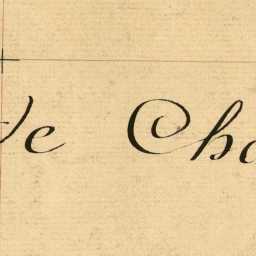 de Cha